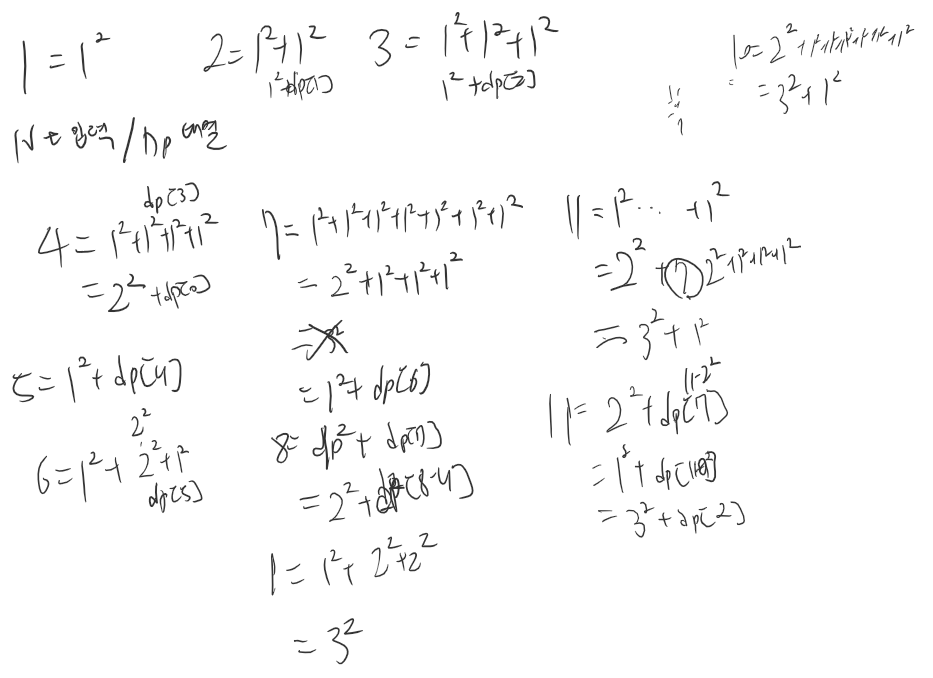 1 = 1² 2 = 1²+1² 3 = 1²+1²+1²
1²+dp[1] 1²+dp[2]
10 = 2²+1²+1²+1²+1²+1²+1²
= 3²+1²
N 입력 / Dp 배열
dp[3]
4 = 1²+1²+1²+1²
= 2²+dp[0]
5 = 1²+dp[4]
2²
6 = 1²+2²+1²
dp[5]
7 = 1²+1²+1²+1²+1²+1²+1²
= 2²+1²+1²+1²
= 3²
= 1²+dp[6]
8 = dp²+dp[7]
= 2²+dp[8-4]
1 = 1²+2²+2²
= 3²
11 = 1² ... +1²
= 2²+7 2²+1²+1²+1²
= 3²+1²
11-2²
11 = 2²+dp[7]
= 1²+dp[10]
= 3²+dp[2]